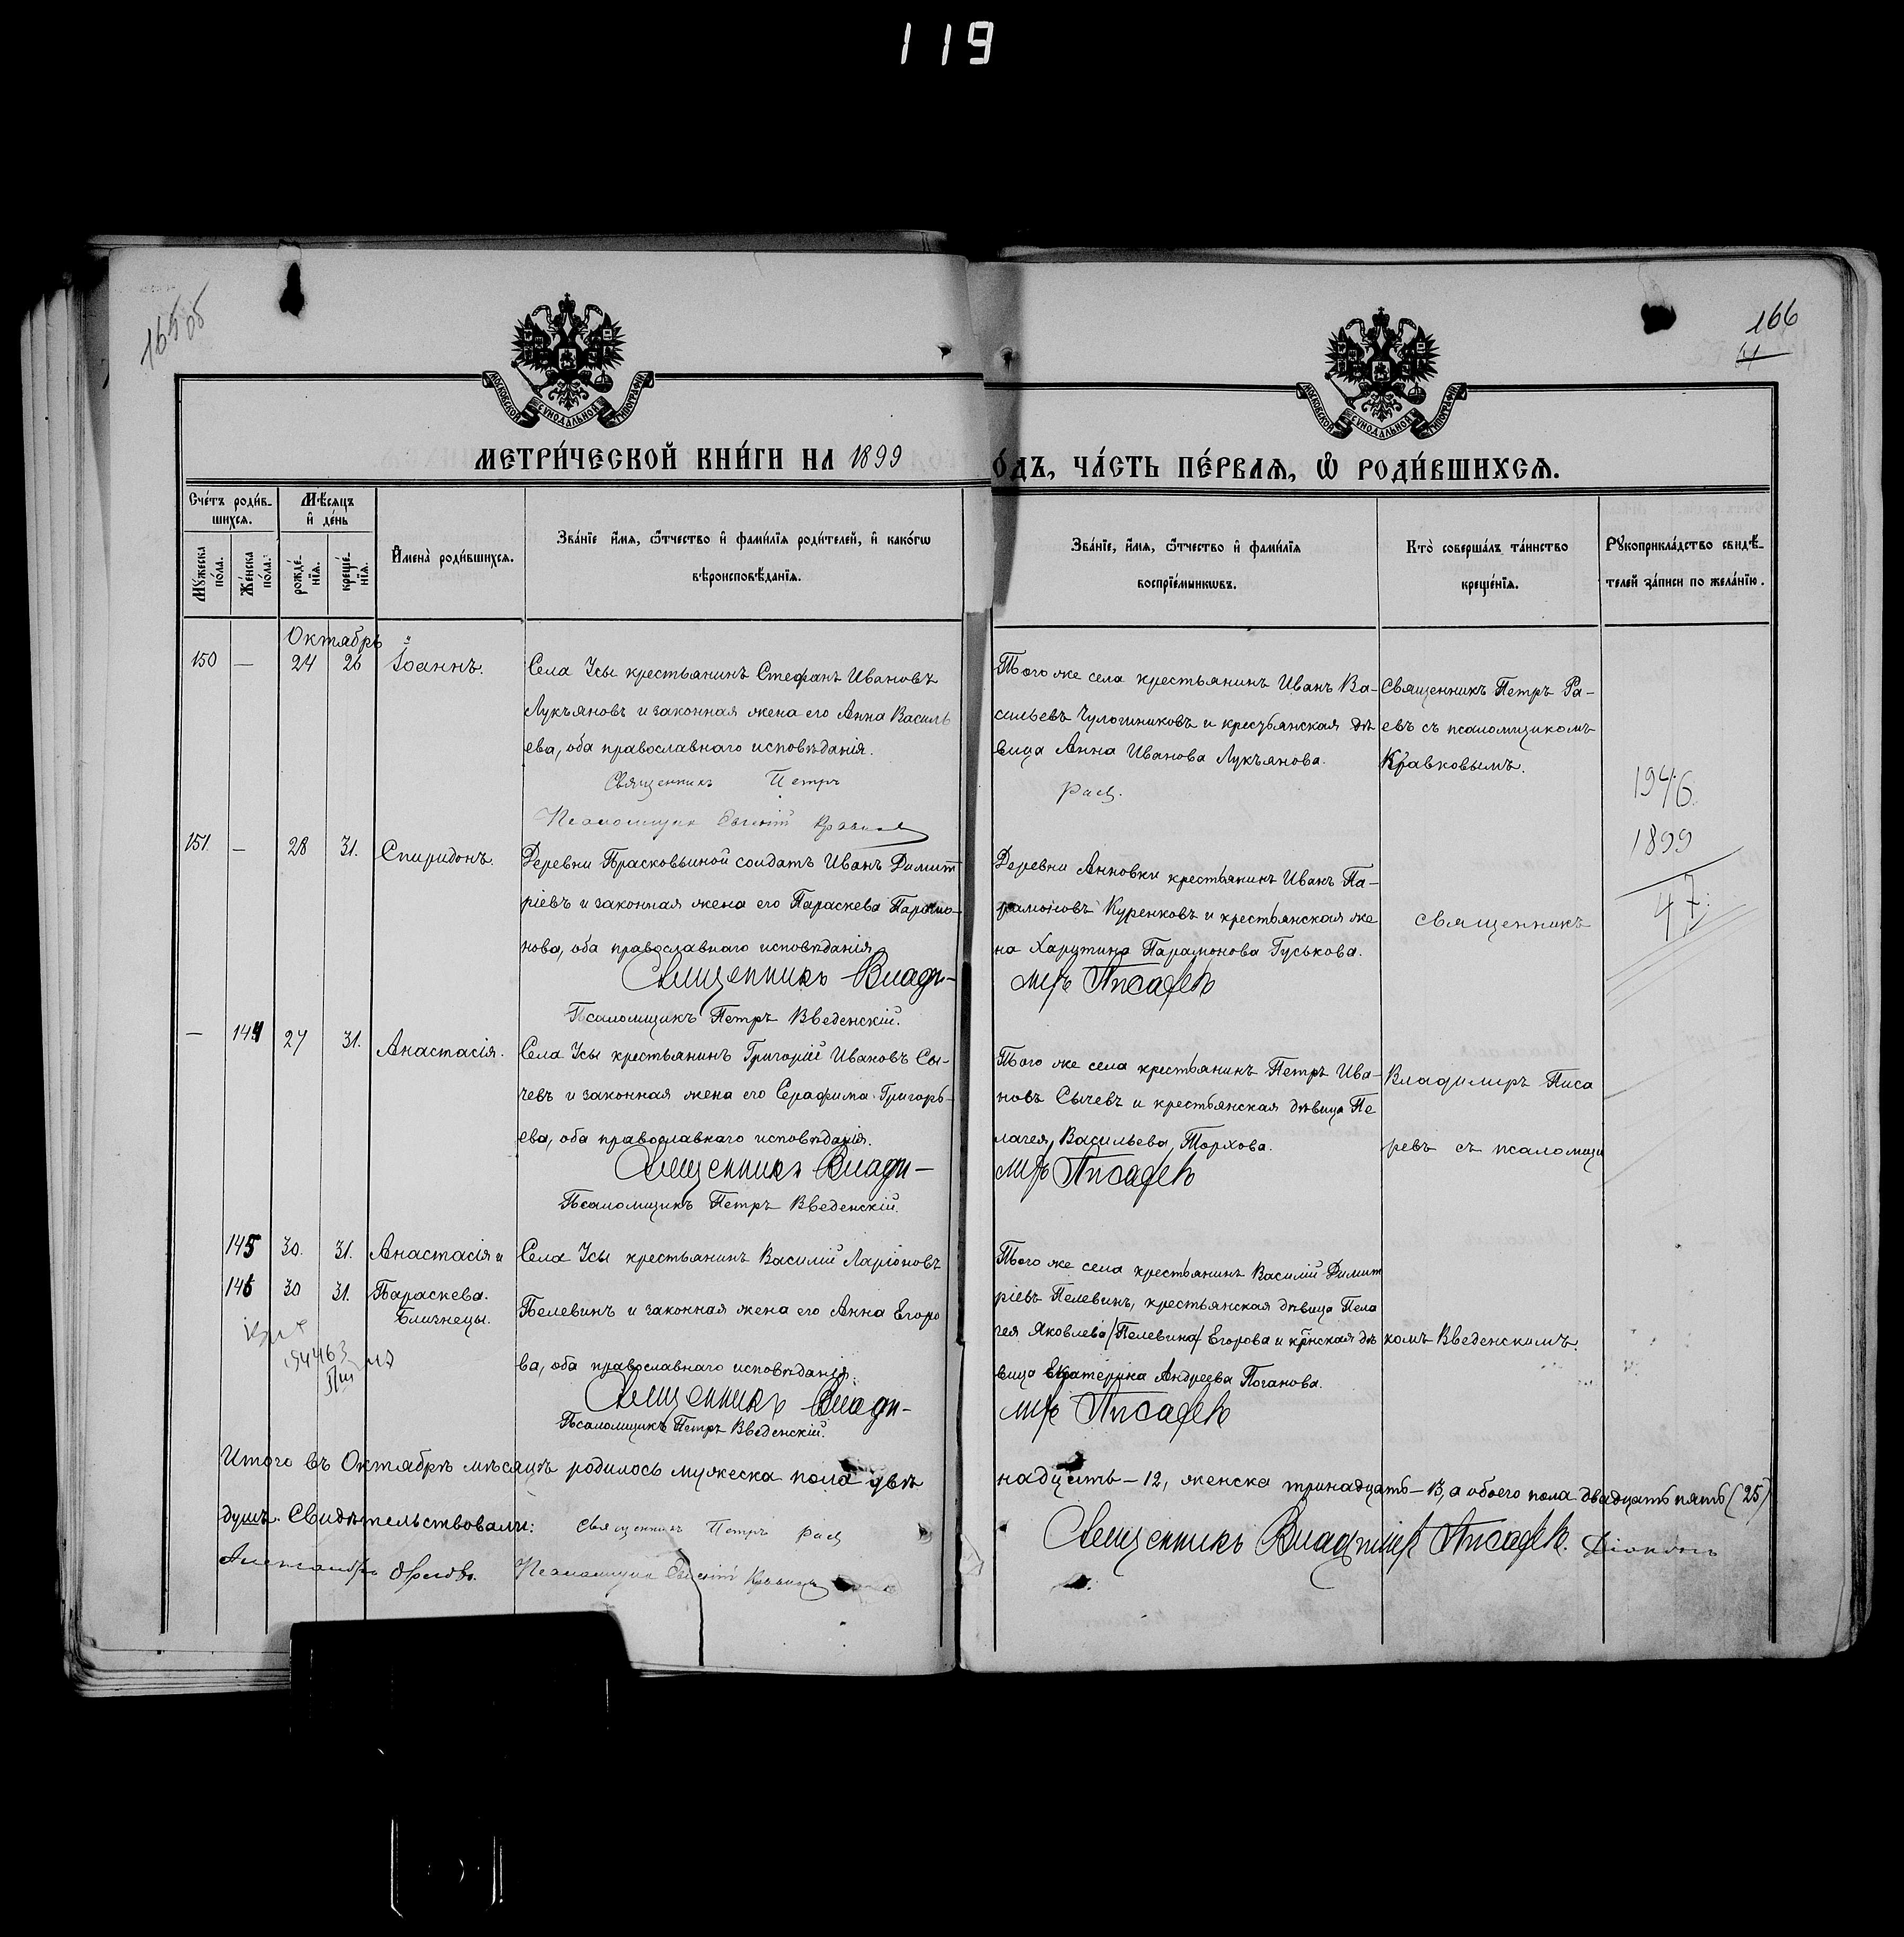 119
165об
166
МОСКОВСКОЙ СУНОДАЛЬНОЙ ТИПОГРАФІИ
МОСКОВСКОЙ СУНОДАЛЬНОЙ ТИПОГРАФІИ
МЕТРИ́ЧЕСКОЙ КНИ́ГИ НА 1899
О́ДЪ, ЧА́СТЬ ПЕ́РВАѦ, Ѡ҆ РОДИ́ВШИХСѦ.
Сче́тъ роди́в-
шихсѧ.
Мѣ́сѧцъ
и҆ де́нь
Мꙋ́жеска
по́ла.
Же́нска
по́ла.
рожде́-
нїѧ.
креще́-
нїѧ.
И҆мена̀ роди́вшихсѧ.
Зва́нїе и҆́мѧ, ѻ҆́тчество и҆ фами́лїѧ роди́телей, и҆ како́гѡ
вѣроисповѣ́данїѧ.
Зва́нїе, и҆́мѧ, ѻ҆́тчество и҆ фами́лїѧ
воспрїе́мникѡвъ.
Кто̀ соверша́лъ та́инство
креще́нїѧ.
Рꙋкоприкла́дство свидѣ́-
телей за́писи по жела́нїю.
Октябрь
150 — 24 26 Іоаннъ.
Села Усы крестьянинъ Стефанъ Ивановъ
Лукъяновъ и законная жена его Анна Василь
ева, оба православнаго исповѣданія.
Священникъ Петръ
Псаломщик Евгеній
Того же села крестьянинъ Иванъ Ва-
сильевъ Чулошниковъ и крестьянская дѣ
вица Анна Иванова Лукъянова.
Раев.
Священникъ Петръ Ра-
евъ съ псаломщикомъ
Кравковымъ.
1946
1899
47.
151. — 28 31. Спиридонъ.
Деревни Прасковьиной солдатъ Иванъ Димит
ріевъ и законная жена его Параскева Парамо-
нова, оба православнаго исповѣданія
Священникъ Влади-
Псаломщикъ Петръ Введенскій.
Деревни Анновки крестьянинъ Иванъ Па-
рамоновъ Куренковъ и крестьянская же
на Харитина Парамонова Гуськова.
миръ Писаревъ
священникъ
— 144 27 31. Анастасія.
Села Усы крестьянинъ Григорій Ивановъ Сы-
чевъ и законная жена его Серафима Григорь-
ева, оба православнаго исповѣданія.
Священникъ Влади-
Псаломщикъ Петръ Введенскій.
Того же села крестьянинъ Петръ Ива-
новъ Сычевъ и крестьянская дѣвица Пе
лагея Васильева Торхова.
миръ Писаревъ
Владимиръ Писа
ревъ съ псаломщи
145 30. 31. Анастасія и
146 30 31. Параскева.
Близнецы.
Села Усы крестьянинъ Василій Ларіоновъ
Пелевинъ и законная жена его Анна Егоро
ва, оба православнаго исповѣданія.
Священникъ Влади-
Псаломщикъ Петръ Введенскій.
Того же села крестьянинъ Василій Димит
ріевъ Пелевинъ, крестьянская дѣвица Пела
гея Яковлева /Пелевина/ Егорова и кр̃нская дѣ
вица Екатерина Андреева Поганова.
миръ Писаревъ
комъ Введенскимъ.
Итого въ Октябрѣ мѣсяцѣ родилось мужеска пола двѣ
надцать — 12, женска тринадцать — 13, а обоего пола двадцать пять (25)
душъ. Свидѣтельствовали: Священникъ Петръ Раев
Священникъ Владимиръ Писаревъ. Діаконъ
Александръ Орловъ. Псаломщик Евгеній